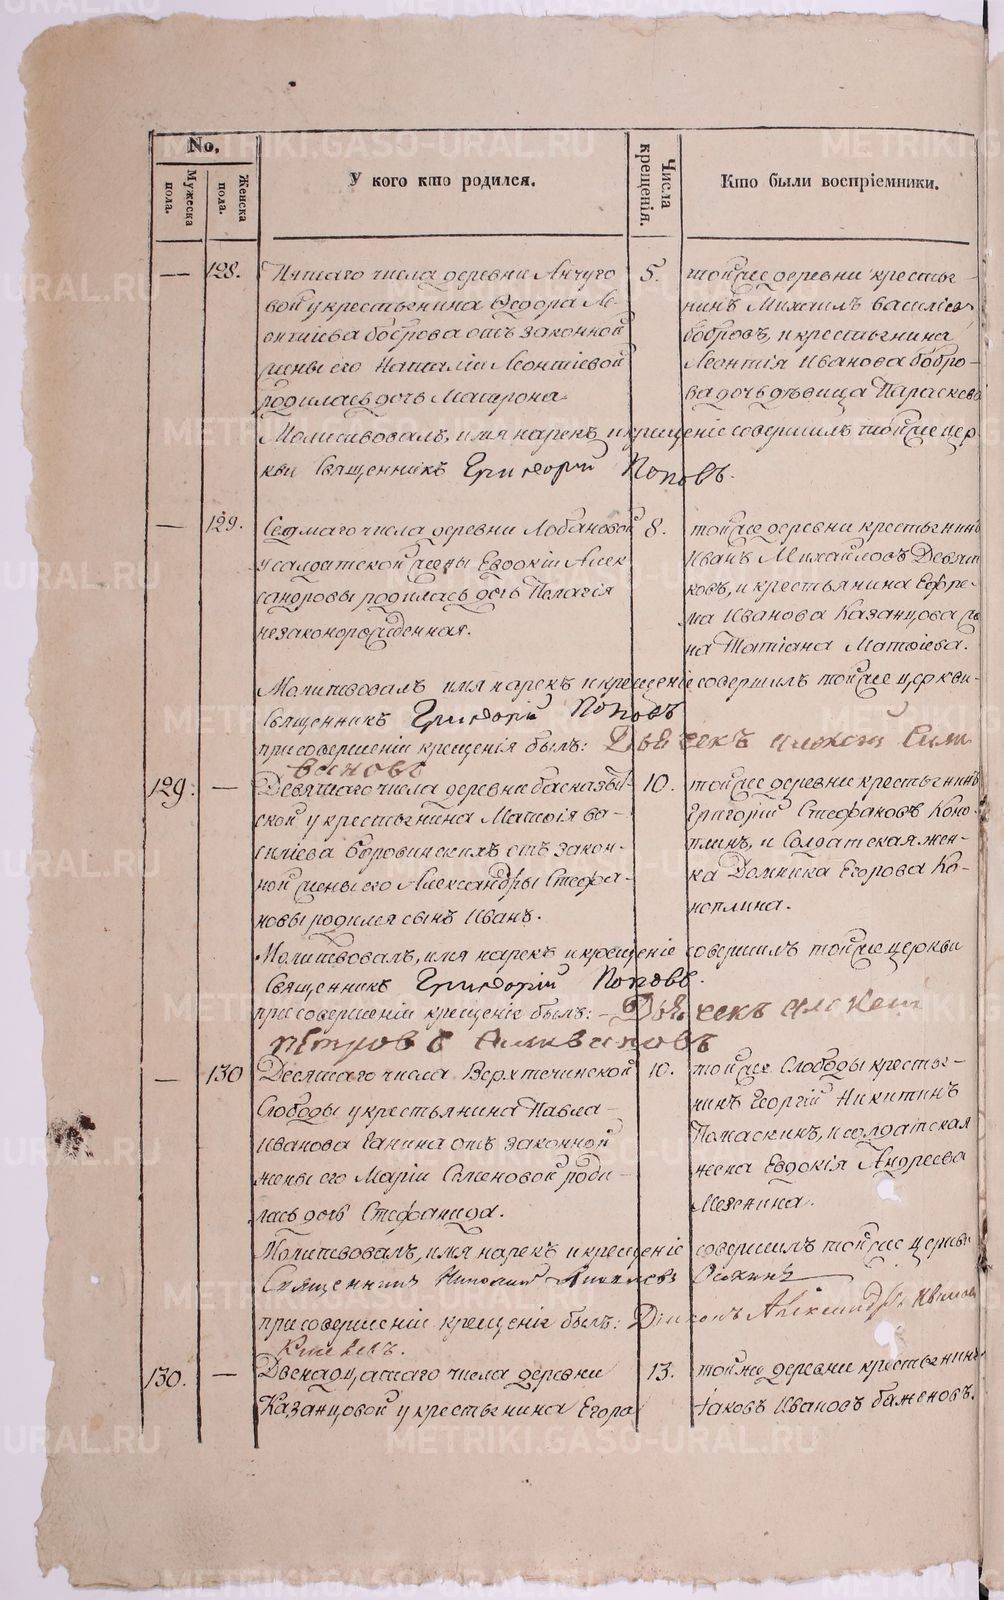 No.
Мужеска пола.
Женска пола.
У кого кто родился.
Числа крещенія.
Кто были воспріемники.
— 128. Пятаго числа деревни Анчуго
вой у крестьянина Ѳедора Ле-
онтіева боброва отъ законной
жены его Наталіи Леонтіевой
родилась дочь Матрона.
5.
той же деревни крестья-
нинъ Михаилъ василіевъ
бобровъ, и крестьянина
Леонтія Иванова бобро-
ва дочь дѣвица Параскева
Молитвовалъ, имя нарекъ и крещеніе совершилъ той же цер
кви Священникъ Григорій Поповъ.
— 129. Седмаго числа деревни Лобановой
у салдатской жены Евдокіи Алек
сандровы родилась дочь Пелагія
незаконорожденная.
8.
той же деревни крестьянинъ
Иванъ Михайловъ Девят
ковъ, и крестьянина Ефре-
ма Иванова Казанцова же
на Татіана Матѳіева.
Молитвовалъ имя нарекъ и крещеніе совершилъ той же церкви
Священникъ Григорій Поповъ
при совершеніи крещенія былъ: Дьячекъ Силь
вановъ
129. — Девятаго числа деревни
ской у крестьянина Матѳія ва-
силіева отъ закон-
ной жены его Александры Стефа-
новы родился сынъ Иванъ.
10.
той же деревни крестьянинъ
Григорій Стефановъ Коно-
плинъ, и Солдатская жен-
ка Домника Егорова Ко-
ноплина.
Молитвовалъ, имя нарекъ и крещеніе совершилъ той же церкви
Священникъ Григорій Поповъ.
при совершеніи крещеніе былъ: — Дьячекъ алексей
петровъ Силивановъ
— 130 Десятаго числа Верхтечинской
Слободы у крестьянина Павла
Иванова Ганина отъ законной
жены его Маріи Семеновой роди-
лась дочь Стефанида.
10.
той же Слободы крестья-
нинъ Георгій Никитинъ
Помаскинъ, и солдатская
жена Евдокія Андреева
Мезенина.
Молитвовалъ, имя нарекъ и крещеніе совершилъ той же церкви
Священникъ Николай
при совершеніи крещеніе былъ: Діаконъ Александръ Ивановъ
130. — Двенадцатаго числа деревни
Казанцовой у крестьянина Егора
13.
той же деревни крестьянинъ
Іаковъ Ивановъ баженовъ.
METRIKI.GASO-URAL.RU